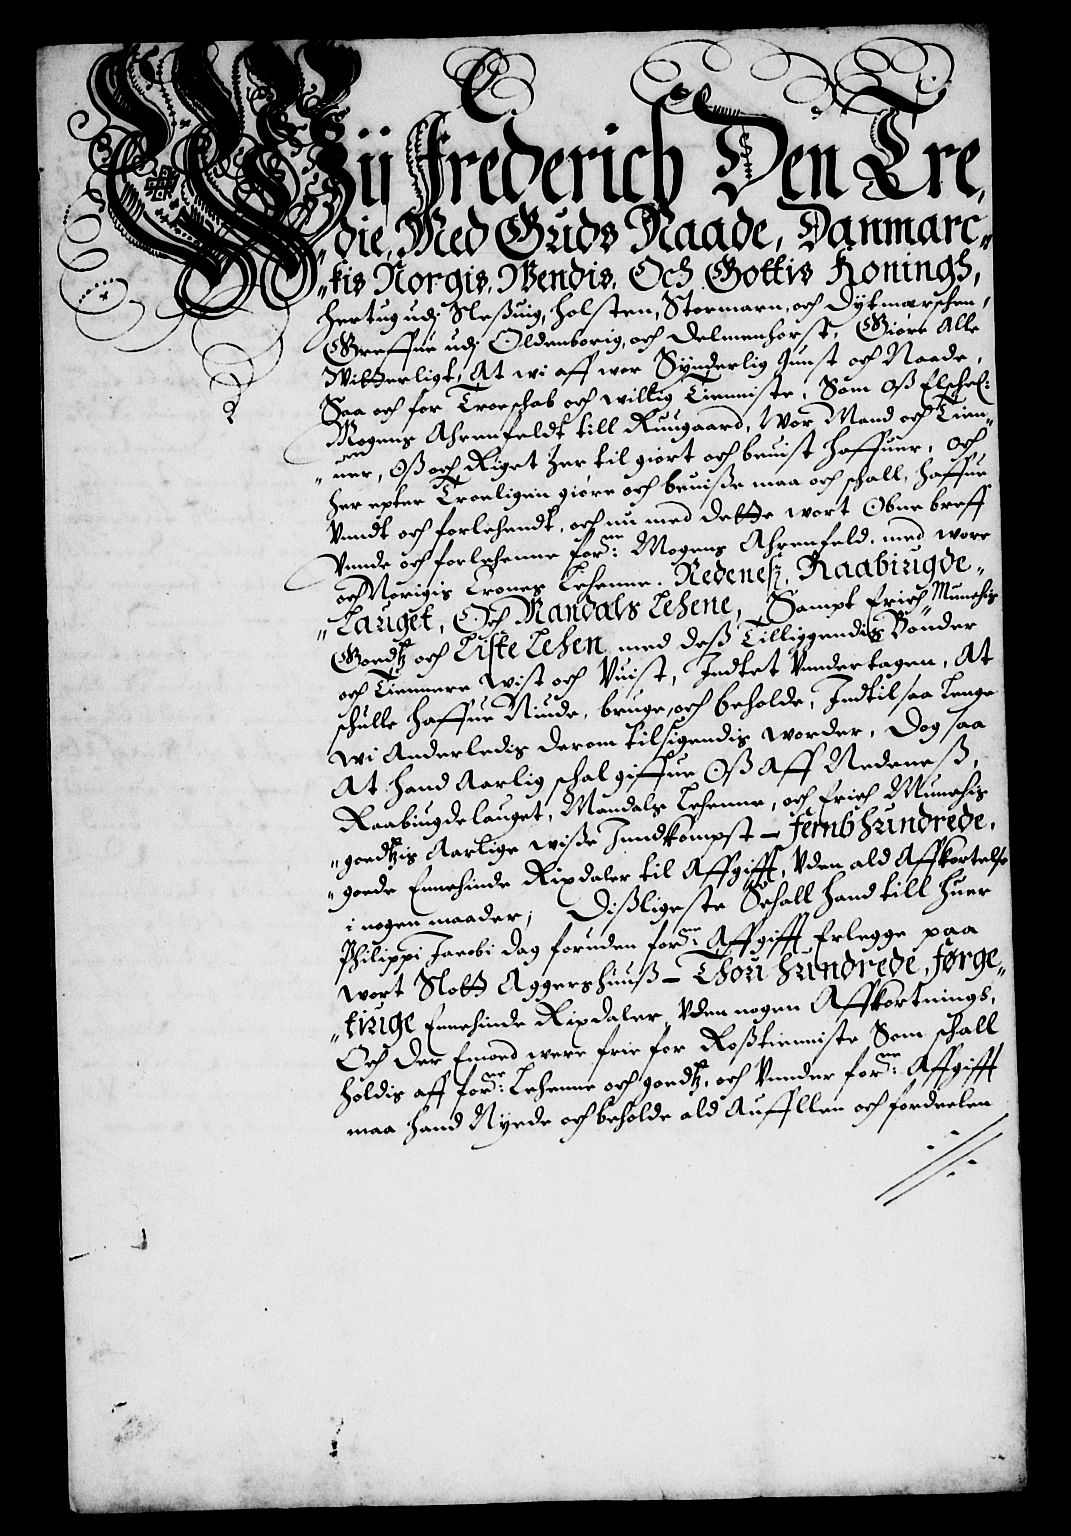 Wii Frederich Den Tre,
„die, Med Guds Naade, Danmarc„
„kis Norgis, Wendis, Och Gottis Konings,
Hertug udj Slesuig, Holsten, Stormarn, och Dytmarschen,
Greffue udj Oldenborig, och Delmenhorst, Giøre Alle
Witterligt, At wi aff wor Synderlig gunst och Naade,
Saa och for Troeschab och willig Tienniste, Som Oß Elschel:
Mogens Ahrenfeldt till Ruugaard, Wor Mand och Tien„
„ner, Oß och Riget her til giort och beuist haffuer, och
her epter Troeligen giøre och beuiße maa och schall, haffue
Vundt och forlehendt, och nu med dette wort Obne breff
Vunde och forlehenne forne: Mogens Ahrenfeld, med wore
och Norigis Crones Lehenne. Nedenes, Raabiugde„
„Lauget, Och Mandals Lehene, Sampt Erich Munchis
Goedtz och Liste Lehen med deß Tilliggendis Bønder
och Tiennere Wist och Vuist, Indtet Vundertagen, At
schulle haffue Niude, bruge, och beholde, Indtil saa lenge
wi Anderledis derom tilsigendis worder, Dog saa
At hand Aarlig schal giffue Oß Aff Nedeneß,
Raabiugdelauget, Mandals Lehenne, och Erich Munchis
„goedtzis Aarlige wiße Inndkompst – Femb Hundrede,
„goede Ennchinde Rixdaler til Affgifft, Vden ald Affkortelse
i nogen maader, Dißligeste Schall hand till huer
Philippi Jacobi dag foruden forne: Affgifft Erlegge paa
wort Slott Aggershuuß – Thou Hundrede, Førge„
„tiuge Ennchinde Rixdaler, Vden nogen Affkortnings,
Och der Emoed were frie for Roßtienniste Som schall
holdis aff forne: Lehenne och goedtz, och Vunder forne: Affgifft
maa hand Nyede och beholde ald Auffllen och fordeelen